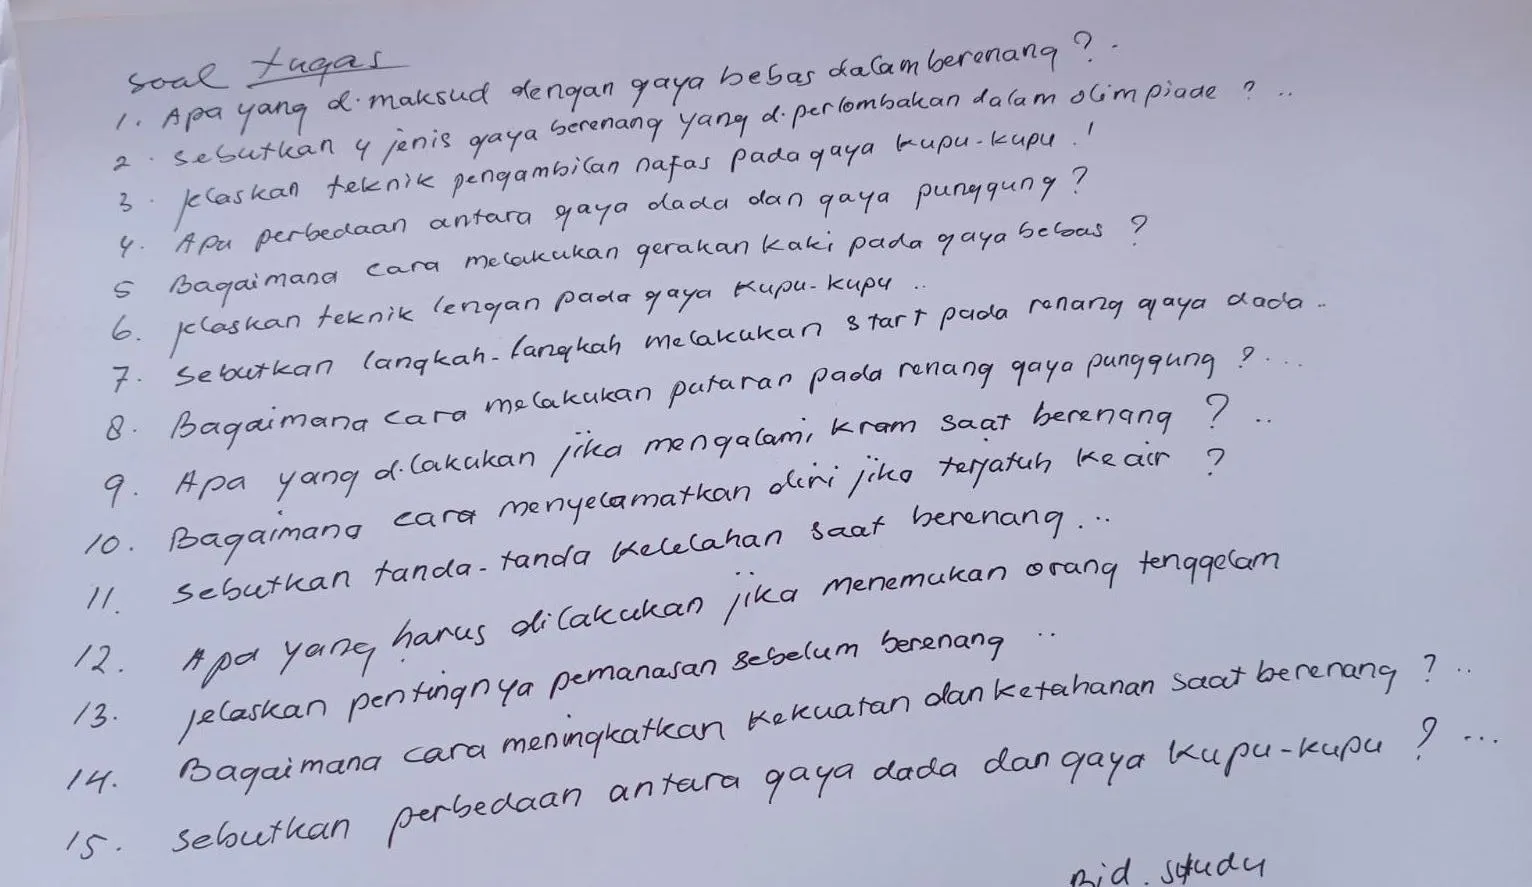 soal tugas
1. Apa yang di maksud dengan gaya bebas dalam berenang ? .
2. sebutkan 4 jenis gaya berenang yang di perlombakan dalam olimpiade ? ..
3. jelaskan teknik pengambilan nafas pada gaya kupu-kupu !
4. Apa perbedaan antara gaya dada dan gaya punggung ?
5 Bagaimana cara melakukan gerakan kaki pada gaya bebas ?
6. jelaskan teknik lengan pada gaya kupu-kupu ..
7. sebutkan langkah-langkah melakukan start pada renang gaya dada ..
8. Bagaimana cara melakukan putaran pada renang gaya punggung ? ...
9. Apa yang di lakukan jika mengalami kram saat berenang ? ..
10. Bagaimana cara menyelamatkan diri jika terjatuh ke air ?
11. sebutkan tanda-tanda kelelahan saat berenang ...
12. Apa yang harus dilakukan jika menemukan orang tenggelam
13. jelaskan pentingnya pemanasan sebelum berenang ..
14. Bagaimana cara meningkatkan kekuatan dan ketahanan saat berenang ? ..
15. sebutkan perbedaan antara gaya dada dan gaya kupu-kupu ? ...
Bid. study